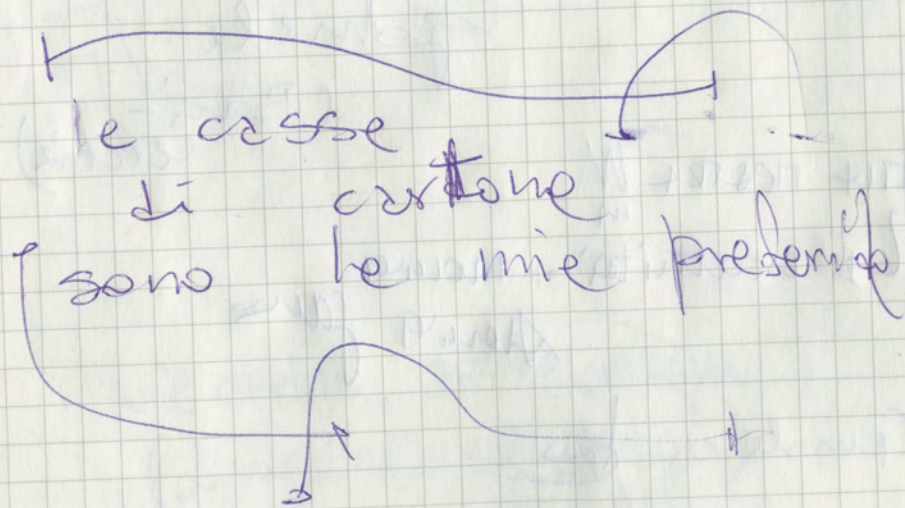 le casse
di cartone
sono le mie preferite